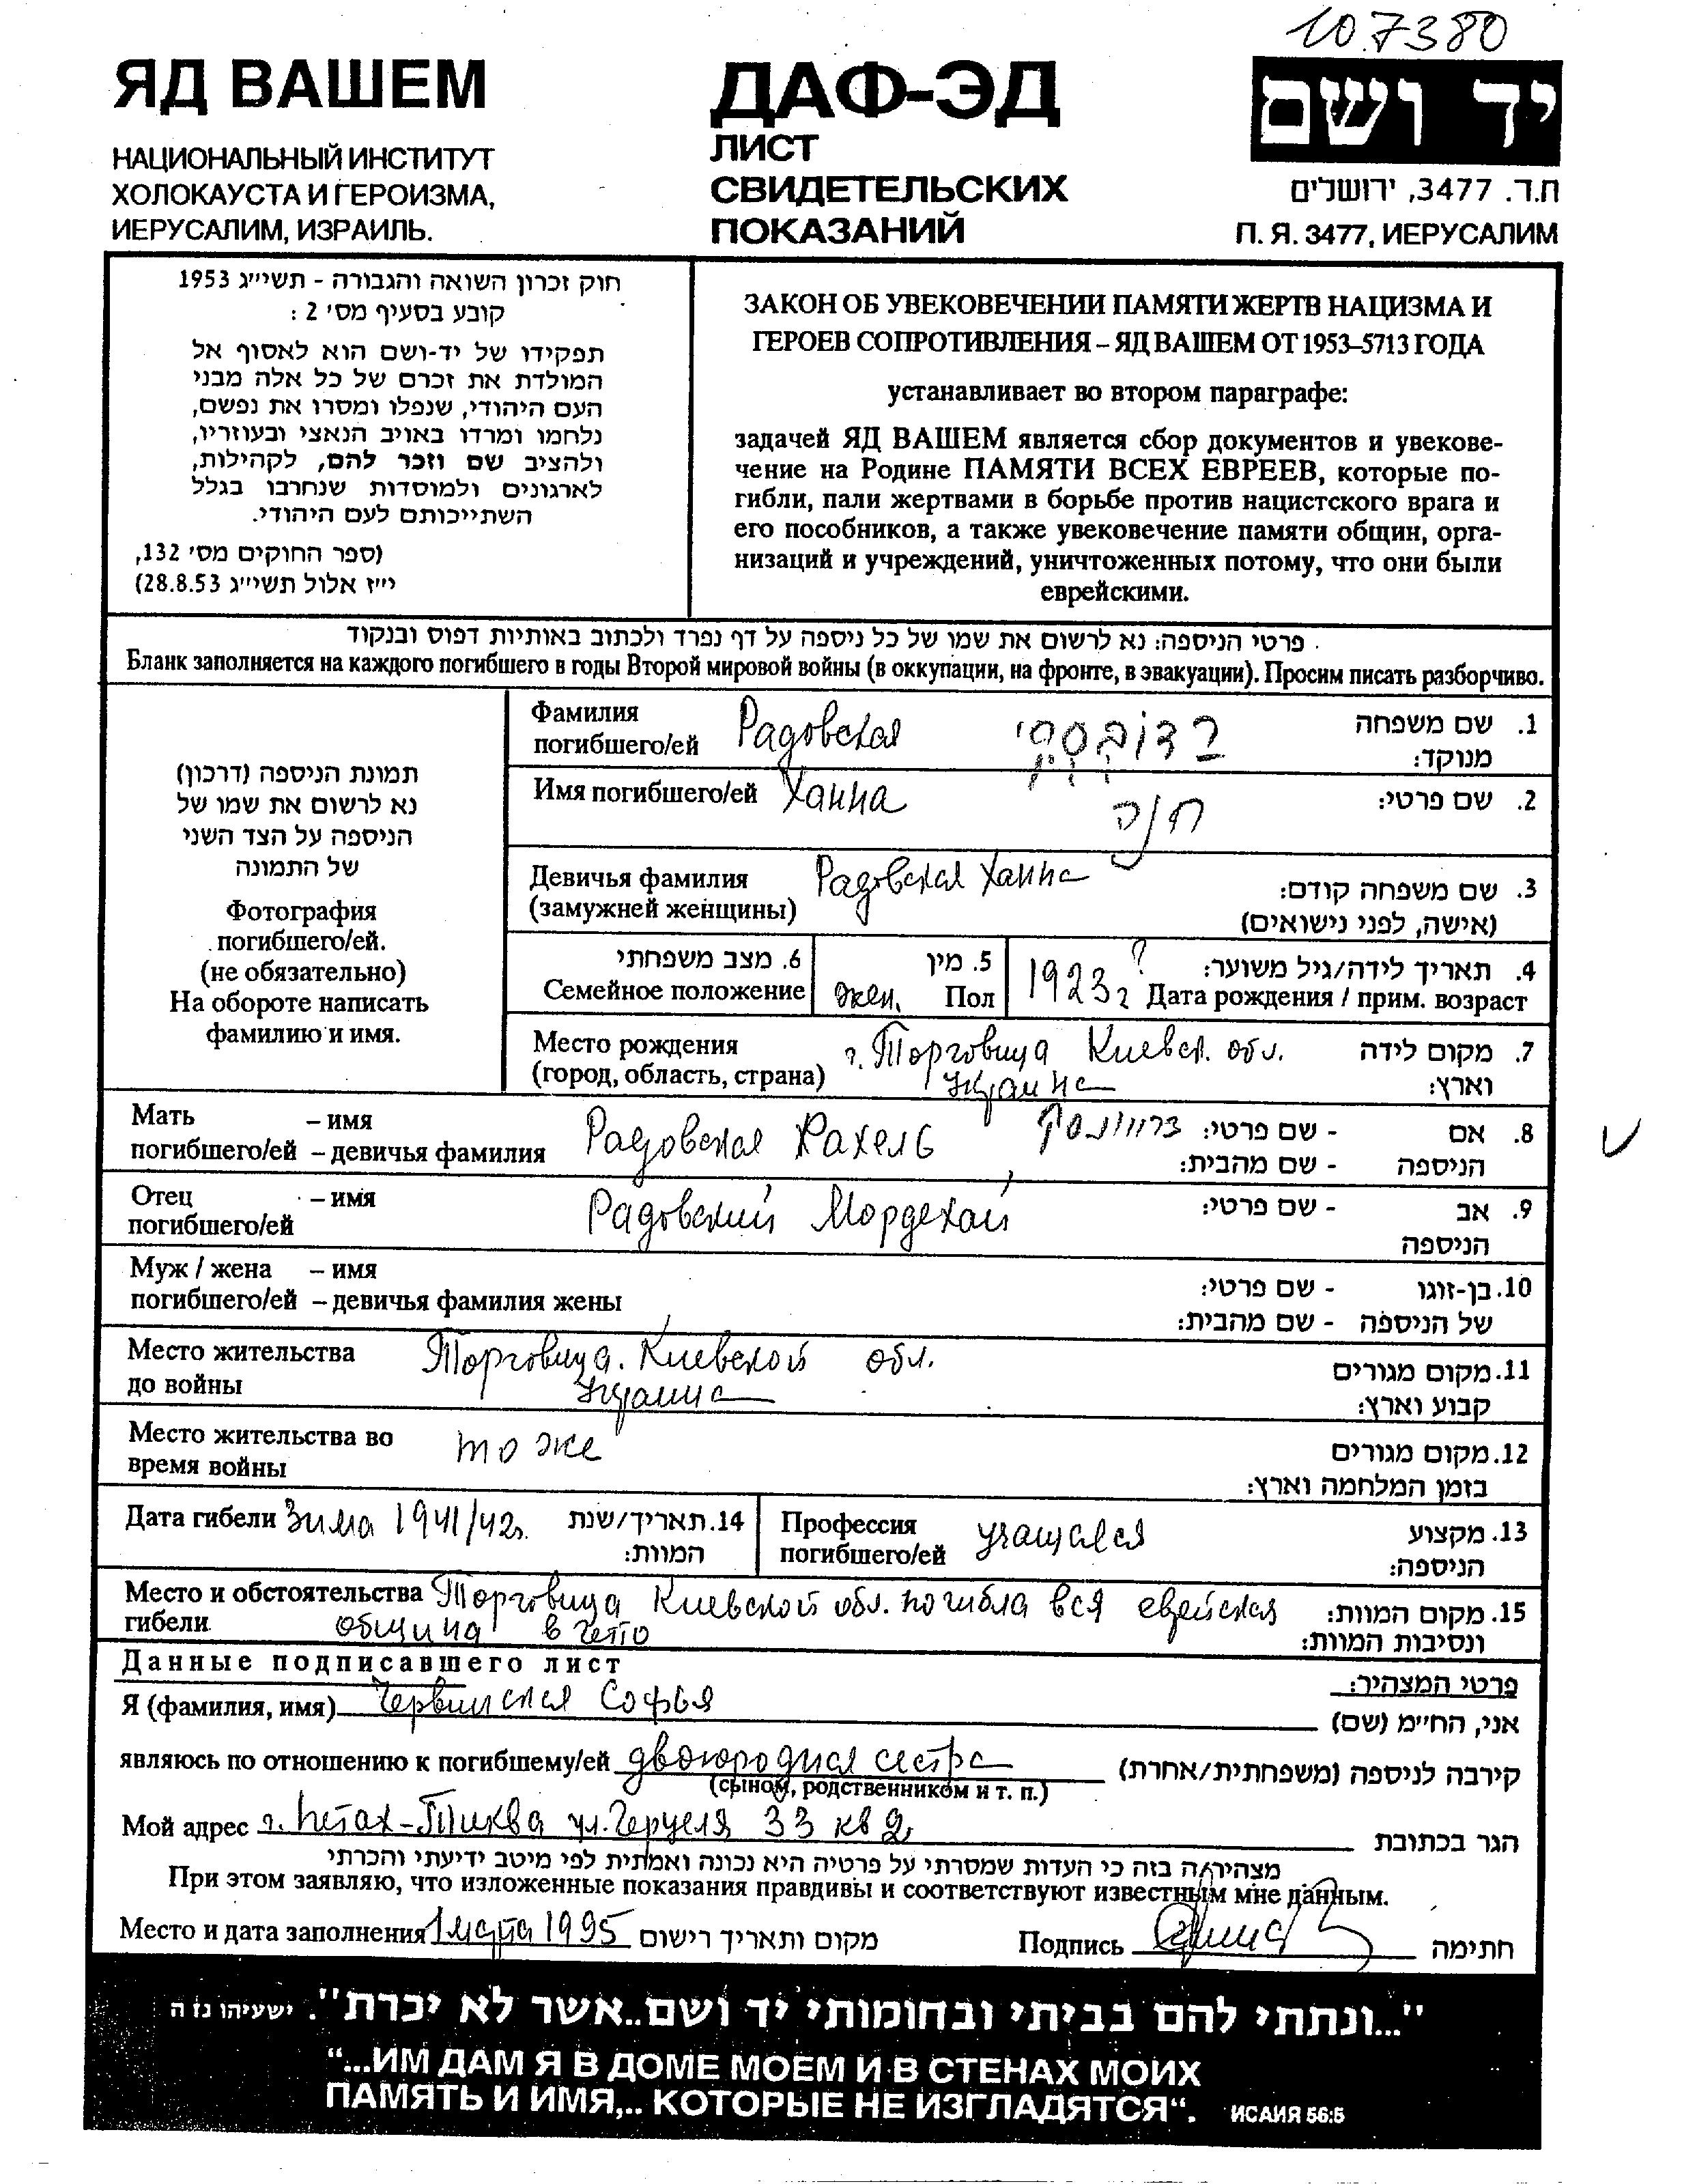 107380
ЯД ВАШЕМ
НАЦИОНАЛЬНЫЙ ИНСТИТУТ
ХОЛОКАУСТА И ГЕРОИЗМА,
ИЕРУСАЛИМ, ИЗРАИЛЬ.
ДАФ-ЭД
ЛИСТ
СВИДЕТЕЛЬСКИХ
ПОКАЗАНИЙ
יד ושם
ת.ד. 3477, ירושלים
П. Я. 3477, ИЕРУСАЛИМ
חוק זכרון השואה והגבורה - תשי״ג 1953
קובע בסעיף מס׳ 2 :
תפקידו של יד-ושם הוא לאסוף אל
המולדת את זכרם של כל אלה מבני
העם היהודי, שנפלו ומסרו את נפשם,
נלחמו ומרדו באויב הנאצי ובעוזריו,
ולהציב שם וזכר להם, לקהילות,
לארגונים ולמוסדות שנחרבו בגלל
השתייכותם לעם היהודי.
(ספר החוקים מס׳ 132,
י״ז אלול תשי״ג 28.8.53)
ЗАКОН ОБ УВЕКОВЕЧЕНИИ ПАМЯТИ ЖЕРТВ НАЦИЗМА И
ГЕРОЕВ СОПРОТИВЛЕНИЯ – ЯД ВАШЕМ ОТ 1953–5713 ГОДА
устанавливает во втором параграфе:
задачей ЯД ВАШЕМ является сбор документов и увекове-
чение на Родине ПАМЯТИ ВСЕХ ЕВРЕЕВ, которые по-
гибли, пали жертвами в борьбе против нацистского врага и
его пособников, а также увековечение памяти общин, орга-
низаций и учреждений, уничтоженных потому, что они были
еврейскими.
פרטי הניספה: נא לרשום את שמו של כל ניספה על דף נפרד ולכתוב באותיות דפוס ובנקוד
Бланк заполняется на каждого погибшего в годы Второй мировой войны (в оккупации, на фронте, в эвакуации). Просим писать разборчиво.
תמונת הניספה (דרכון)
נא לרשום את שמו של
הניספה על הצד השני
של התמונה
Фотография
погибшего/ей.
(не обязательно)
На обороте написать
фамилию и имя.
Фамилия Радовская רדובסקי 1. שם משפחה
погибшего/ей מנוקד:
Имя погибшего/ей Ханна חנה 2. שם פרטי:
Девичья фамилия Радовская Ханна 3. שם משפחה קודם:
(замужней женщины) (אישה, לפני נישואים)
6. מצב משפחתי
Семейное положение
5. מין
жен. Пол
4. תאריך לידה/גיל משוער:
1923г ? Дата рождения / прим. возраст
Место рождения г. Торговица Киевск. обл. 7. מקום לידה
(город, область, страна) Украина וארץ:
Мать – имя Радовская Рахель 8. אם - שם פרטי:
погибшего/ей – девичья фамилия הניספה - שם מהבית:
Отец – имя Радовский Мордехай 9. אב - שם פרטי:
погибшего/ей הניספה
Муж / жена – имя 10. בן-זוגו - שם פרטי:
погибшего/ей – девичья фамилия жены של הניספה - שם מהבית:
Место жительства Торговица. Киевской обл. 11. מקום מגורים
до войны Украина קבוע וארץ:
Место жительства во то же 12. מקום מגורים
время войны בזמן המלחמה וארץ:
Дата гибели Зима 1941/42г. 14. תאריך/שנת
המוות:
Профессия учащаяся 13. מקצוע
погибшего/ей הניספה:
Место и обстоятельства Торговица Киевской обл. погибла вся еврейская 15. מקום המוות:
гибели община в гетто ונסיבות המוות:
Данные подписавшего лист פרטי המצהיר:
Я (фамилия, имя) Червинская Софья אני, הח״מ (שם)
являюсь по отношению к погибшему/ей двоюродная сестра קירבה לניספה (משפחתית/אחרת)
(сыном, родственником и т. п.)
Мой адрес г. Петах-Тиква ул. Герцеля 33 кв 2, הגר בכתובת
מצהיר/ה בזה כי העדות שמסרתי על פרטיה היא נכונה ואמתית לפי מיטב ידיעתי והכרתי
При этом заявляю, что изложенные показания правдивы и соответствуют известным мне данным.
Место и дата заполнения 1 марта 1995 מקום ותאריך רישום Подпись חתימה
"...ונתתי להם בביתי ובחומותי יד ושם..אשר לא יכרת". ישעיהו נו ה
“...ИМ ДАМ Я В ДОМЕ МОЕМ И В СТЕНАХ МОИХ
ПАМЯТЬ И ИМЯ,.. КОТОРЫЕ НЕ ИЗГЛАДЯТСЯ“. ИСАИЯ 56:5